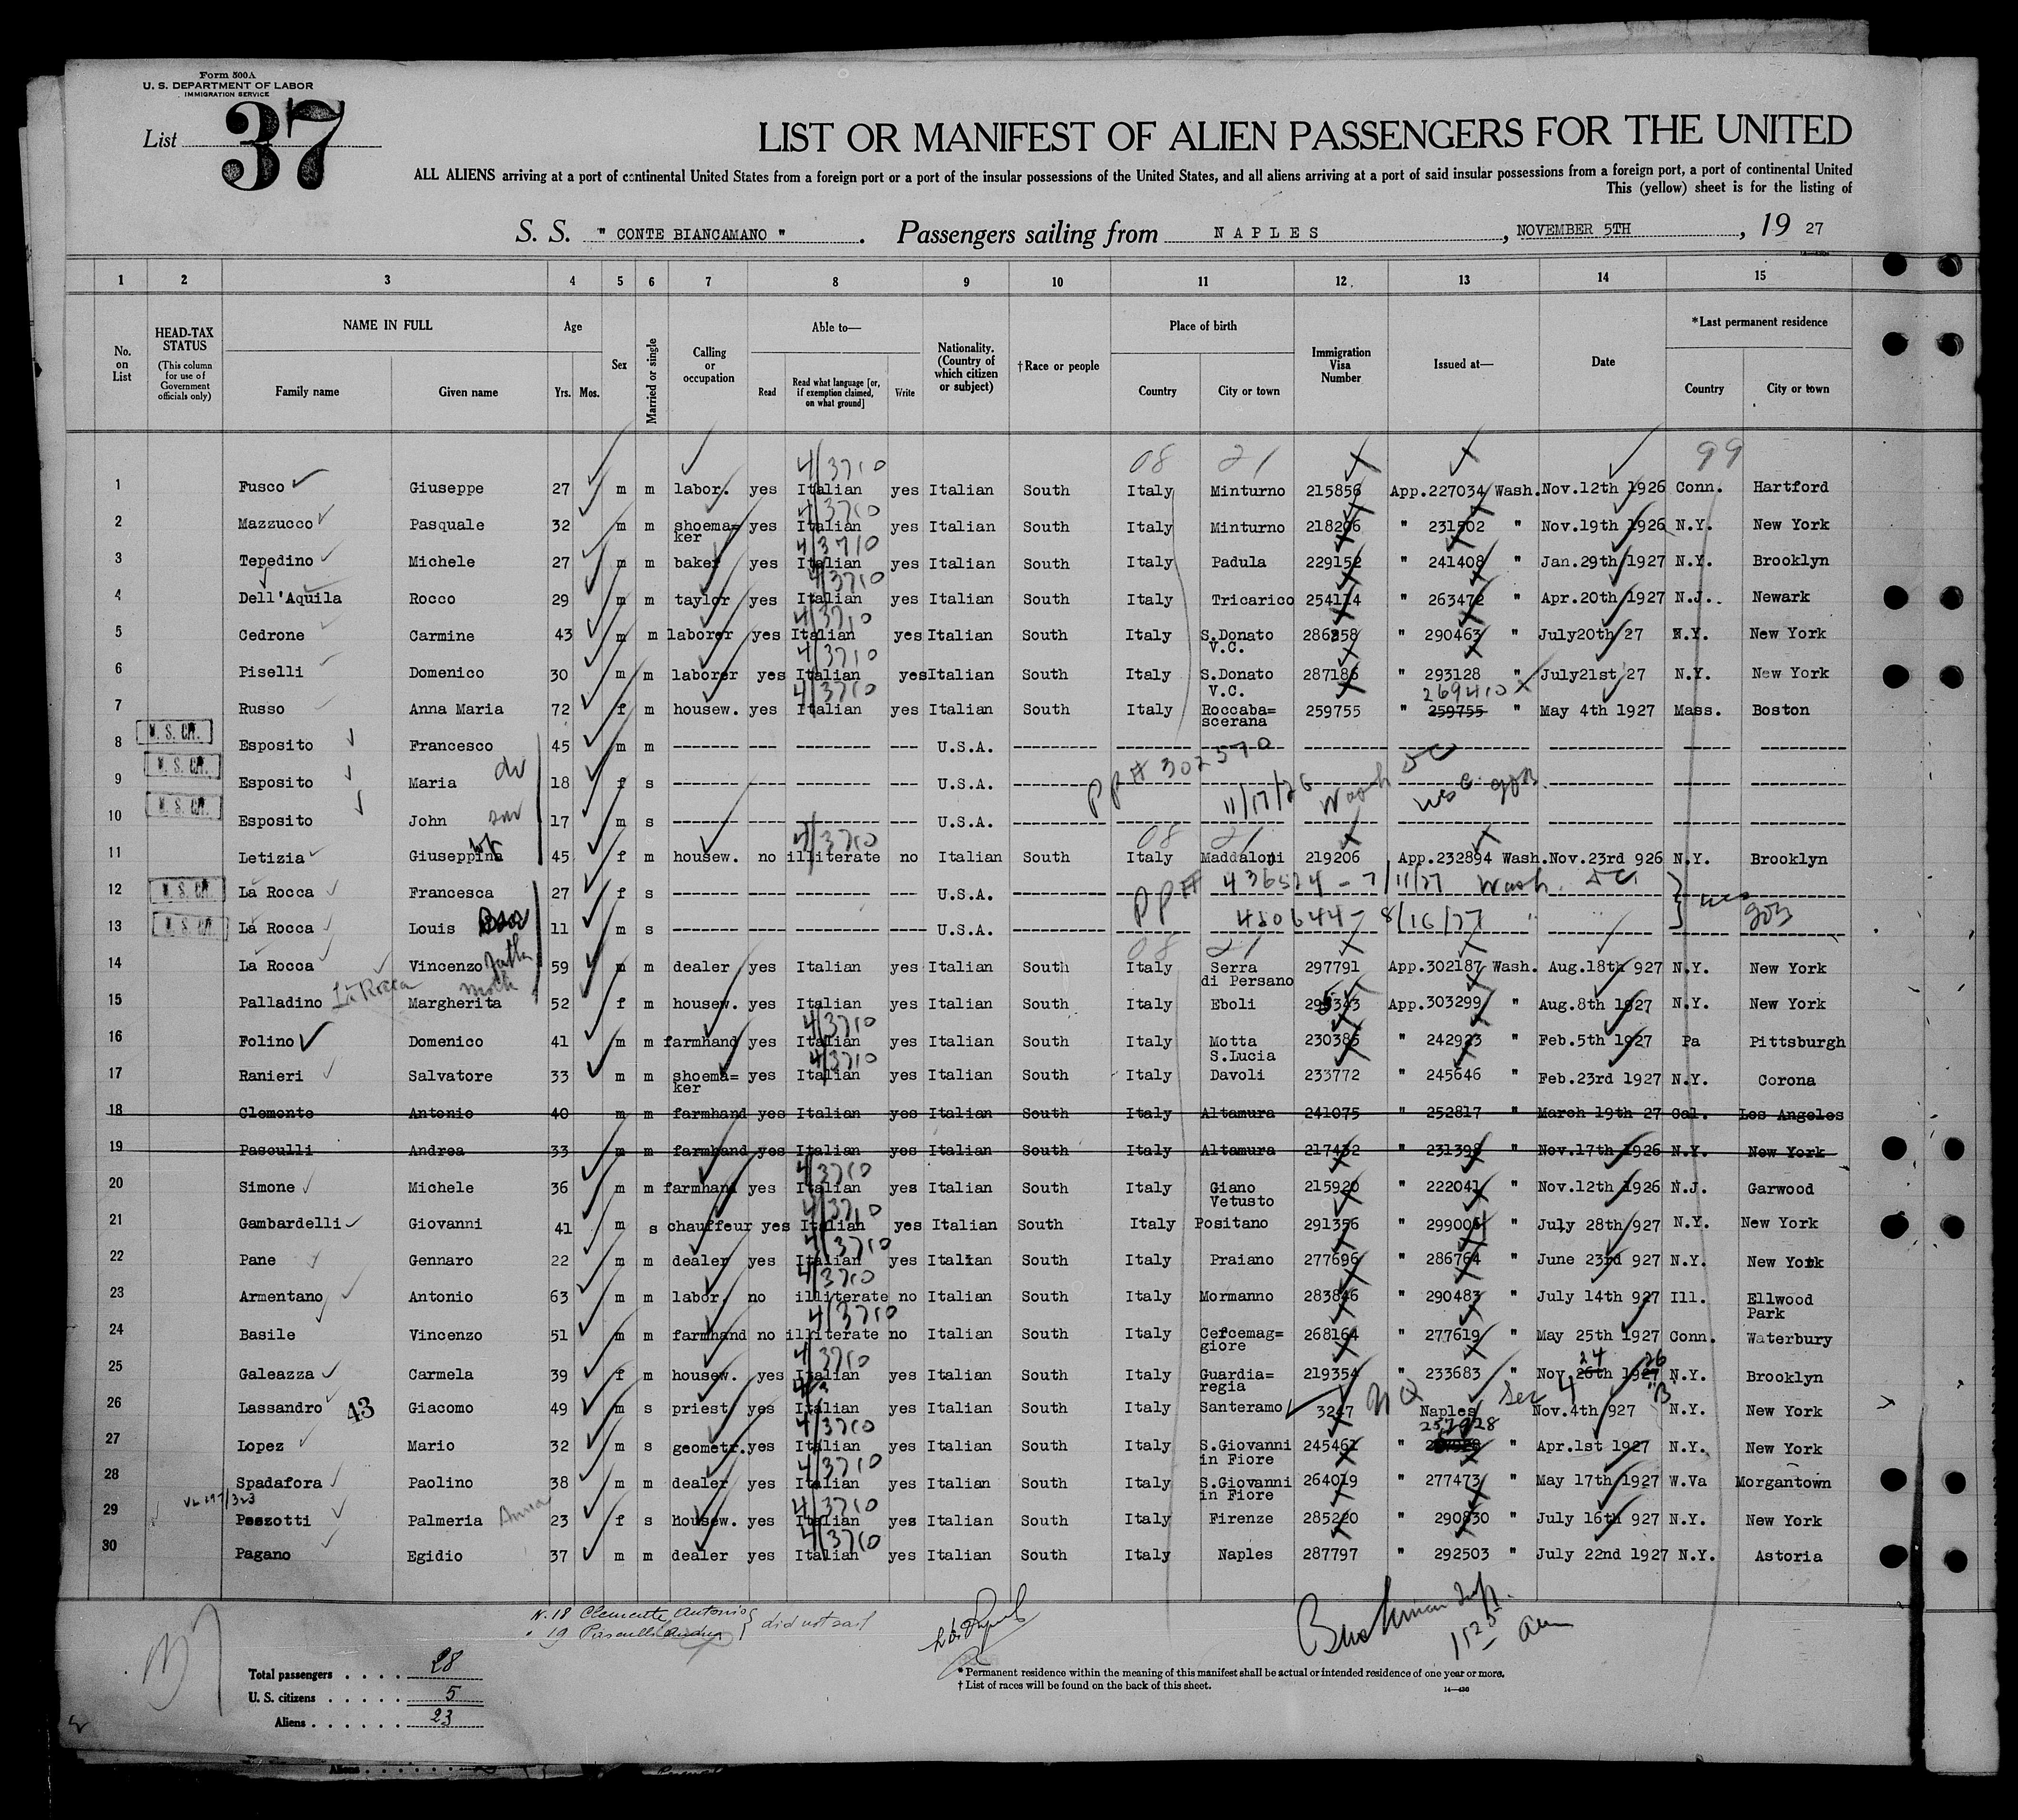 Form 500A
U. S. DEPARTMENT OF LABOR
IMMIGRATION SERVICE
List 37
LIST OR MANIFEST OF ALIEN PASSENGERS FOR THE UNITED
ALL ALIENS arriving at a port of continental United States from a foreign port or a port of the insular possessions of the United States, and all aliens arriving at a port of said insular possessions from a foreign port, a port of continental United
This (yellow) sheet is for the listing of
S. S. " CONTE BIANCAMANO " . Passengers sailing from NAPLES , NOVEMBER 5TH , 19 27
1 2 3 4 5 6 7 8 9 10 11 12 13 14 15
No. on List
HEAD-TAX STATUS
(This column for use of Government officials only)
NAME IN FULL
Family name Given name
Age
Yrs. Mos.
Sex
Married or single
Calling or occupation
Able to—
Read Read what language [or, if exemption claimed, on what ground] Write
Nationality. (Country of which citizen or subject)
†Race or people
Place of birth
Country City or town
Immigration Visa Number
Issued at—
Date
*Last permanent residence
Country City or town
4/3710 08 21 99
1 Fusco Giuseppe 27 m m labor. yes Italian yes Italian South Italy Minturno 215856 App.227034 Wash. Nov.12th 1926 Conn. Hartford
4/3710
2 Mazzucco Pasquale 32 m m shoema= yes Italian yes Italian South Italy Minturno 218206 " 231502 " Nov.19th 1926 N.Y. New York
ker
4/3710
3 Tepedino Michele 27 m m baker yes Italian yes Italian South Italy Padula 229152 " 241408 " Jan.29th 1927 N.Y. Brooklyn
4/3710
4 Dell'Aquila Rocco 29 m m taylor yes Italian yes Italian South Italy Tricarico 254114 " 263472 " Apr.20th 1927 N.J. Newark
4/3710
5 Cedrone Carmine 43 m m laborer yes Italian yes Italian South Italy S.Donato 286858 " 290463 " July20th 27 N.Y. New York
V.C.
4/3710
6 Piselli Domenico 30 m m laborer yes Italian yes Italian South Italy S.Donato 287186 " 293128 " July21st 27 N.Y. New York
V.C.
4/3710 269410
7 Russo Anna Maria 72 f m housew. yes Italian yes Italian South Italy Roccaba= 259755 " 259755 " May 4th 1927 Mass. Boston
scerana
8 U. S. CIT. Esposito Francesco 45 m m U.S.A.
9 U. S. CIT. Esposito Maria 18 f s U.S.A.
PP# 302570
11/17/26 Wash DC
10 U. S. CIT. Esposito John 17 m s U.S.A.
4/3710 08 21
11 Letizia Giuseppina 45 f m housew. no illiterate no Italian South Italy Maddaloni 219206 App.232894 Wash. Nov.23rd 926 N.Y. Brooklyn
12 U. S. CIT. La Rocca Francesca 27 f s U.S.A. PP# 436524 - 7/11/27 Wash. DC
13 U. S. CIT. La Rocca Louis 11 m s U.S.A. 480644 - 8/16/27 " "
08 21
14 La Rocca Vincenzo 59 m m dealer yes Italian yes Italian South Italy Serra 297791 App.302187 Wash. Aug.18th 927 N.Y. New York
di Persano
15 Palladino La Rocca Margherita moth 52 f m housew. yes Italian yes Italian South Italy Eboli 295343 App.303299 " Aug.8th 1927 N.Y. New York
4/3710
16 Folino Domenico 41 m m farmhand yes Italian yes Italian South Italy Motta 230385 " 242923 " Feb.5th 1927 Pa Pittsburgh
S.Lucia
4/3710
17 Ranieri Salvatore 33 m m shoema= yes Italian yes Italian South Italy Davoli 233772 " 245646 " Feb.23rd 1927 N.Y. Corona
ker
18 Clemente Antonio 40 m m farmhand yes Italian yes Italian South Italy Altamura 241075 " 252817 " March 19th 27 Cal. Los Angeles
19 Pasculli Andrea 33 m m farmhand yes Italian yes Italian South Italy Altamura 217432 " 231398 " Nov.17th 1926 N.Y. New York
4/3710
20 Simone Michele 36 m m farmhand yes Italian yes Italian South Italy Giano 215920 " 222041 " Nov.12th 1926 N.J. Garwood
Vetusto
4/3710
21 Gambardelli Giovanni 41 m s chauffeur yes Italian yes Italian South Italy Positano 291356 " 299005 " July 28th 927 N.Y. New York
4/3710
22 Pane Gennaro 22 m m dealer yes Italian yes Italian South Italy Praiano 277696 " 286764 " June 23rd 927 N.Y. New York
4/3710
23 Armentano Antonio 63 m m labor. no illiterate no Italian South Italy Mormanno 283846 " 290483 " July 14th 927 Ill. Ellwood
Park
4/3710
24 Basile Vincenzo 51 m m farmhand no illiterate no Italian South Italy Cercemag= 268164 " 277619 " May 25th 1927 Conn. Waterbury
giore
4/3710 24 26
25 Galeazza Carmela 39 f m housew. yes Italian yes Italian South Italy Guardia= 219354 " 233683 " Nov 26th 1927 N.Y. Brooklyn
regia
26 Lassandro 43 Giacomo 49 m s priest yes Italian yes Italian South Italy Santeramo 3247 NQ Naples Sec 4 Nov.4th 927 N.Y. New York
4/3710 257928
27 Lopez Mario 32 m s geometr. yes Italian yes Italian South Italy S.Giovanni 245461 " " Apr.1st 1927 N.Y. New York
in Fiore
4/3710
28 Spadafora Paolino 38 m m dealer yes Italian yes Italian South Italy S.Giovanni 264019 " 277473 " May 17th 1927 W.Va Morgantown
in Fiore
4/3710
29 Pezzotti Palmeria Anna 23 f s Housew. yes Italian yes Italian South Italy Firenze 285220 " 290830 " July 16th 927 N.Y. New York
4/3710
30 Pagano Egidio 37 m m dealer yes Italian yes Italian South Italy Naples 287797 " 292503 " July 22nd 1927 N.Y. Astoria
N. 18 Clemente Antonio } did not sail
" 19 Pasculli Andrea
Total passengers . . . . 28
U. S. citizens . . . . . 5
Aliens . . . . . . 23
* Permanent residence within the meaning of this manifest shall be actual or intended residence of one year or more.
† List of races will be found on the back of this sheet.
14—430